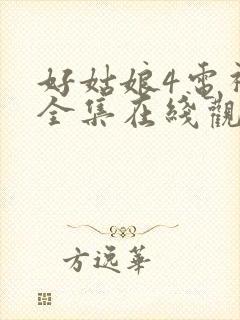 好姑娘4電視
全集在綫觀
方逸華